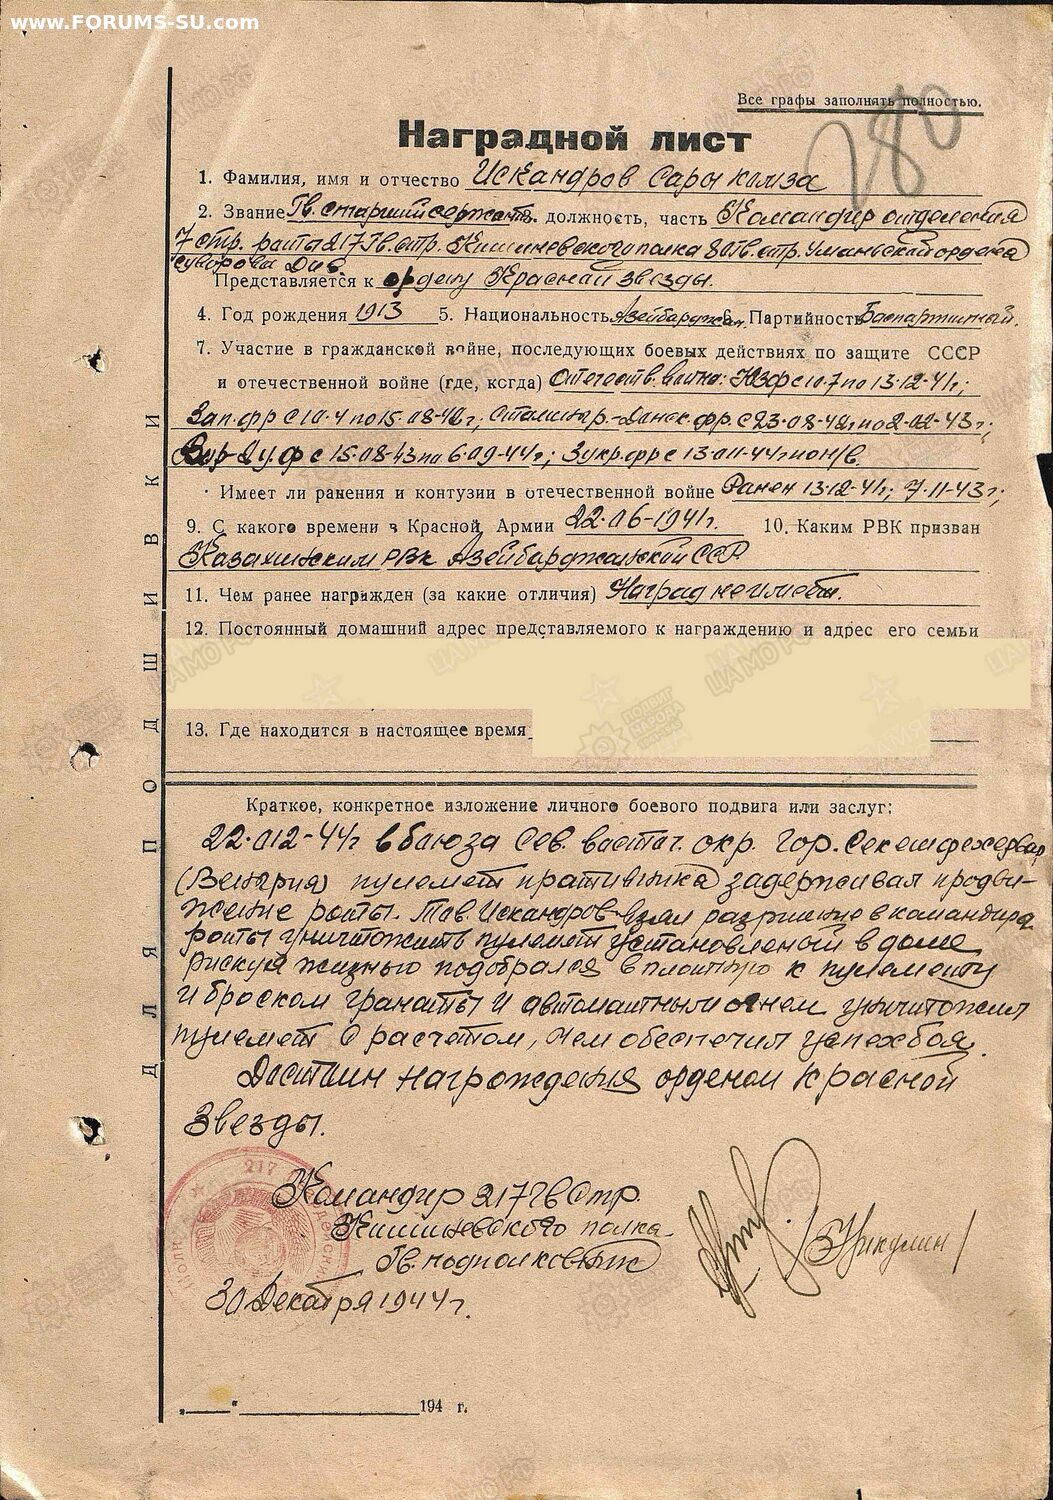 www.FORUMS-SU.com
Все графы заполнять полностью.
280
Наградной лист
1. Фамилия, имя и отчество Искандров Сары
2. Звание Гв. старший сержант. должность, часть Командир отделения
7 стр. роты 217 Гв. стр. Кишиневского полка 80 Гв. стр. Уманьский ордена
Суворова Див.
Представляется к ордену Красной звезды.
4. Год рождения 1913 5. Национальность Азейбарджан. 6. Партийность Беспартийный.
7. Участие в гражданской войне, последующих боевых действиях по защите СССР
и отечественной войне (где, когда) Отечеств. война: ЮЗФ с 10.7 по 13-12-41г;
Зап. фр с 10.4 по 15.08-42г; Сталингр.-Донск. фр. с 23-08-42г по 2-02-43г;
Вор-2уф с 15.08-43 по 6.09-44г; 3 укр. фр с 13-011-44г по н/в.
Имеет ли ранения и контузии в отечественной войне Ранен 13-12-41г; 7-11-43г;
9. С какого времени в Красной Армии 22-06-1941г. 10. Каким РВК призван
РВК Азейбарджанской ССР
11. Чем ранее награжден (за какие отличия) Наград не имеет.
12. Постоянный домашний адрес представляемого к награждению и адрес его семьи
13. Где находится в настоящее время
ДЛЯ ПОДШИВКИ
Краткое, конкретное изложение личного боевого подвига или заслуг:
22-012-44г в бою за Сев. восточ. окр. гор. Секешфехервар
(Венгрия) пулемет противника задерживал продви-
жение роты. Тов. Искандров взял разришение в командира
роты уничтожить пулемет установленый в доме
рискуя жизнью подобрался вплотную к пулемету
и броском гранаты и автоматным огнем уничтожил
пулемет с расчетом, чем обеспечил успех боя.
Достоин награждения орденом Красной
Звезды.
217
Командир 217 гв Стр.
Кишиневского полка
Гв. подполковник
/Никулин/
30 Декабря 1944г.
„___" ____________194 г.